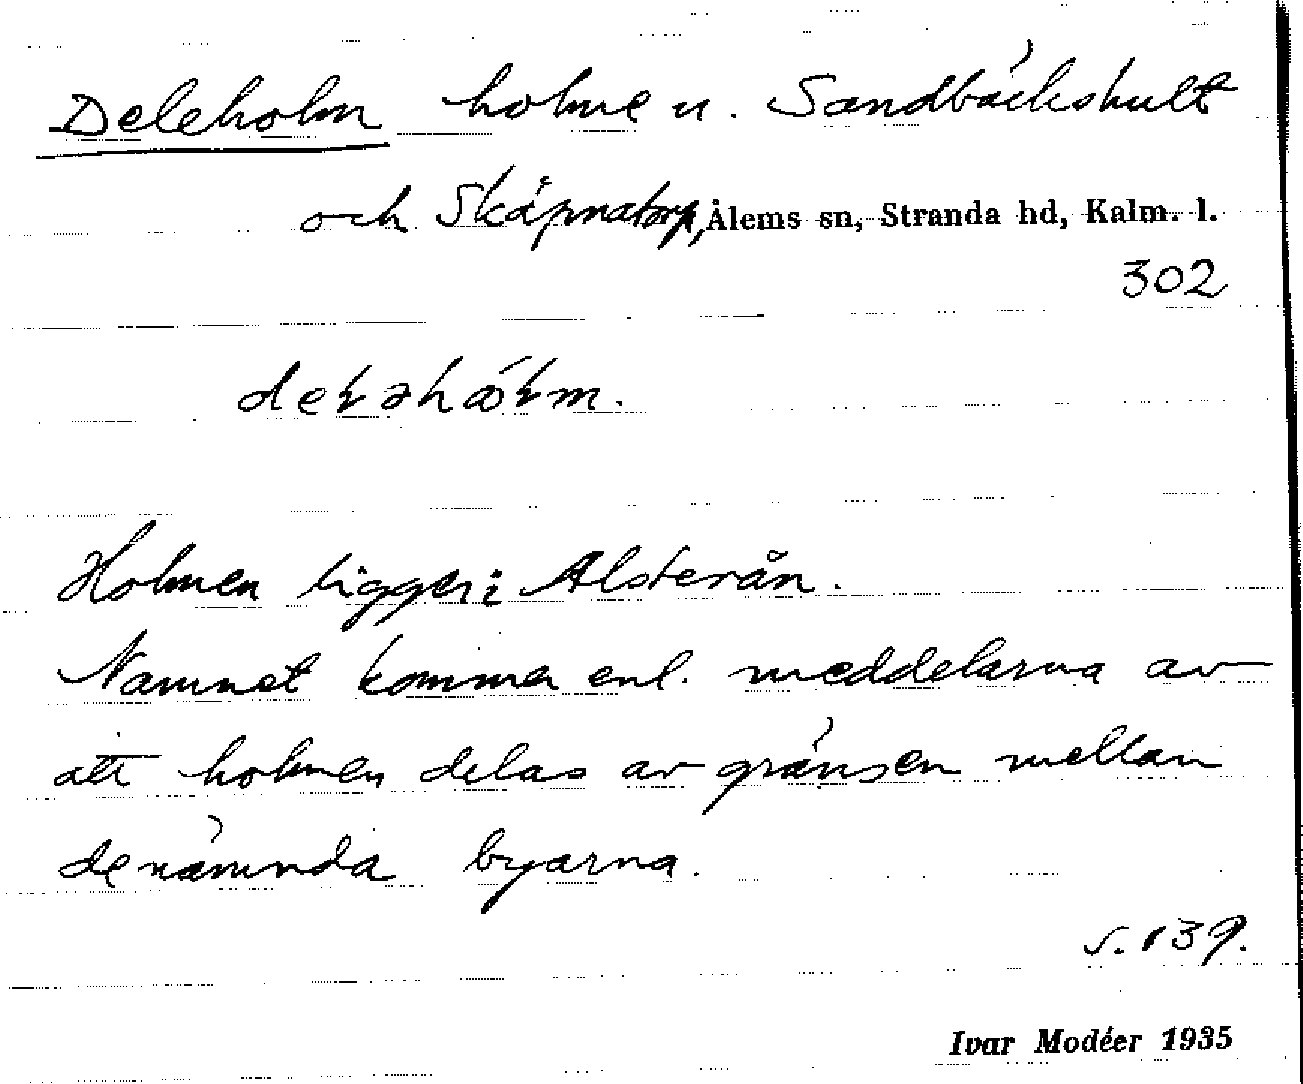 Deleholm holme u. Sandbäckshult
och Skäpnatorp, Ålems sn, Stranda hd, Kalm. l.
302
Holmen ligger i Alsterån.
Namnet kommer enl. meddelarna av
att holmen delas av gränsen mellan
de nämnda byarna.
s. 139.
Ivar Modéer 1935